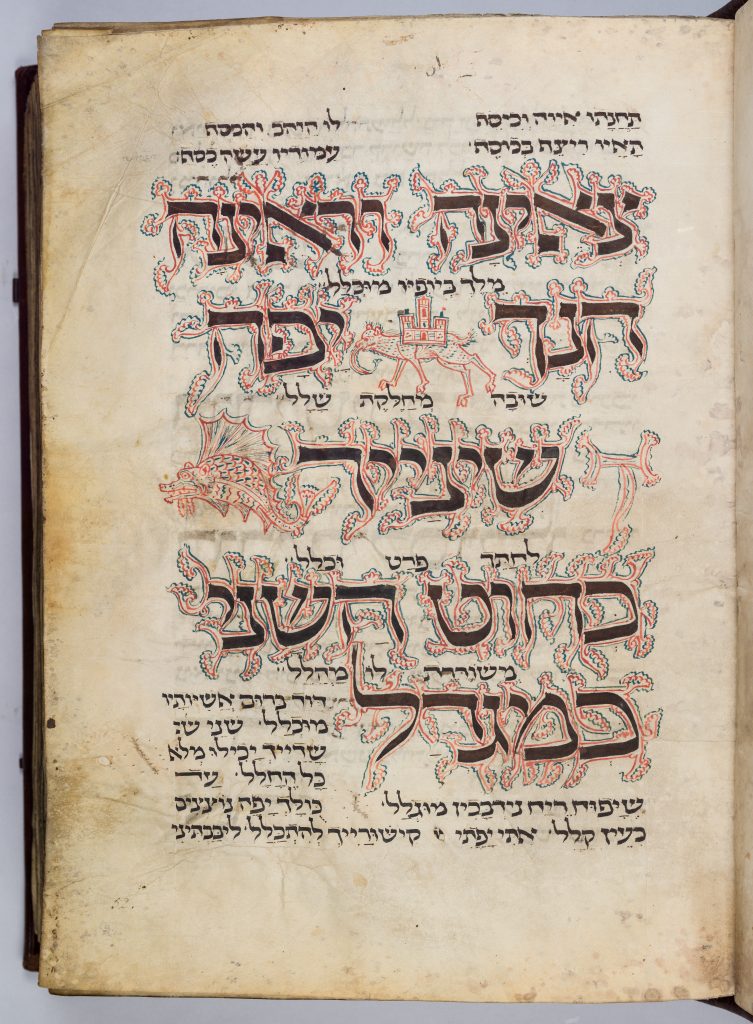 תחנתו איוה וכיסה לו הזהב והמכסה
האיו ריצת בכוסה׳ עמודיו עשה כסת׳
צאינה וראינה
מלך ביופיו מוכלל׳
הנך יפה
שובה מחלקת שלל׳
שיניך
לחתך פרט וכלל׳
כחוט השני
משוררת לו מהלל׳
כמגדל
דויד ברום אשיותיו
מוכלל׳ שני שד
שדייך יכילו מלא
כל החלל׳ עד
שיפוח ריח נירבכין מוגלל׳ כולך יפה נוצצים
כעין קלל׳ אתי יפתי קישורייך להתכלל׳ ליבבתיני